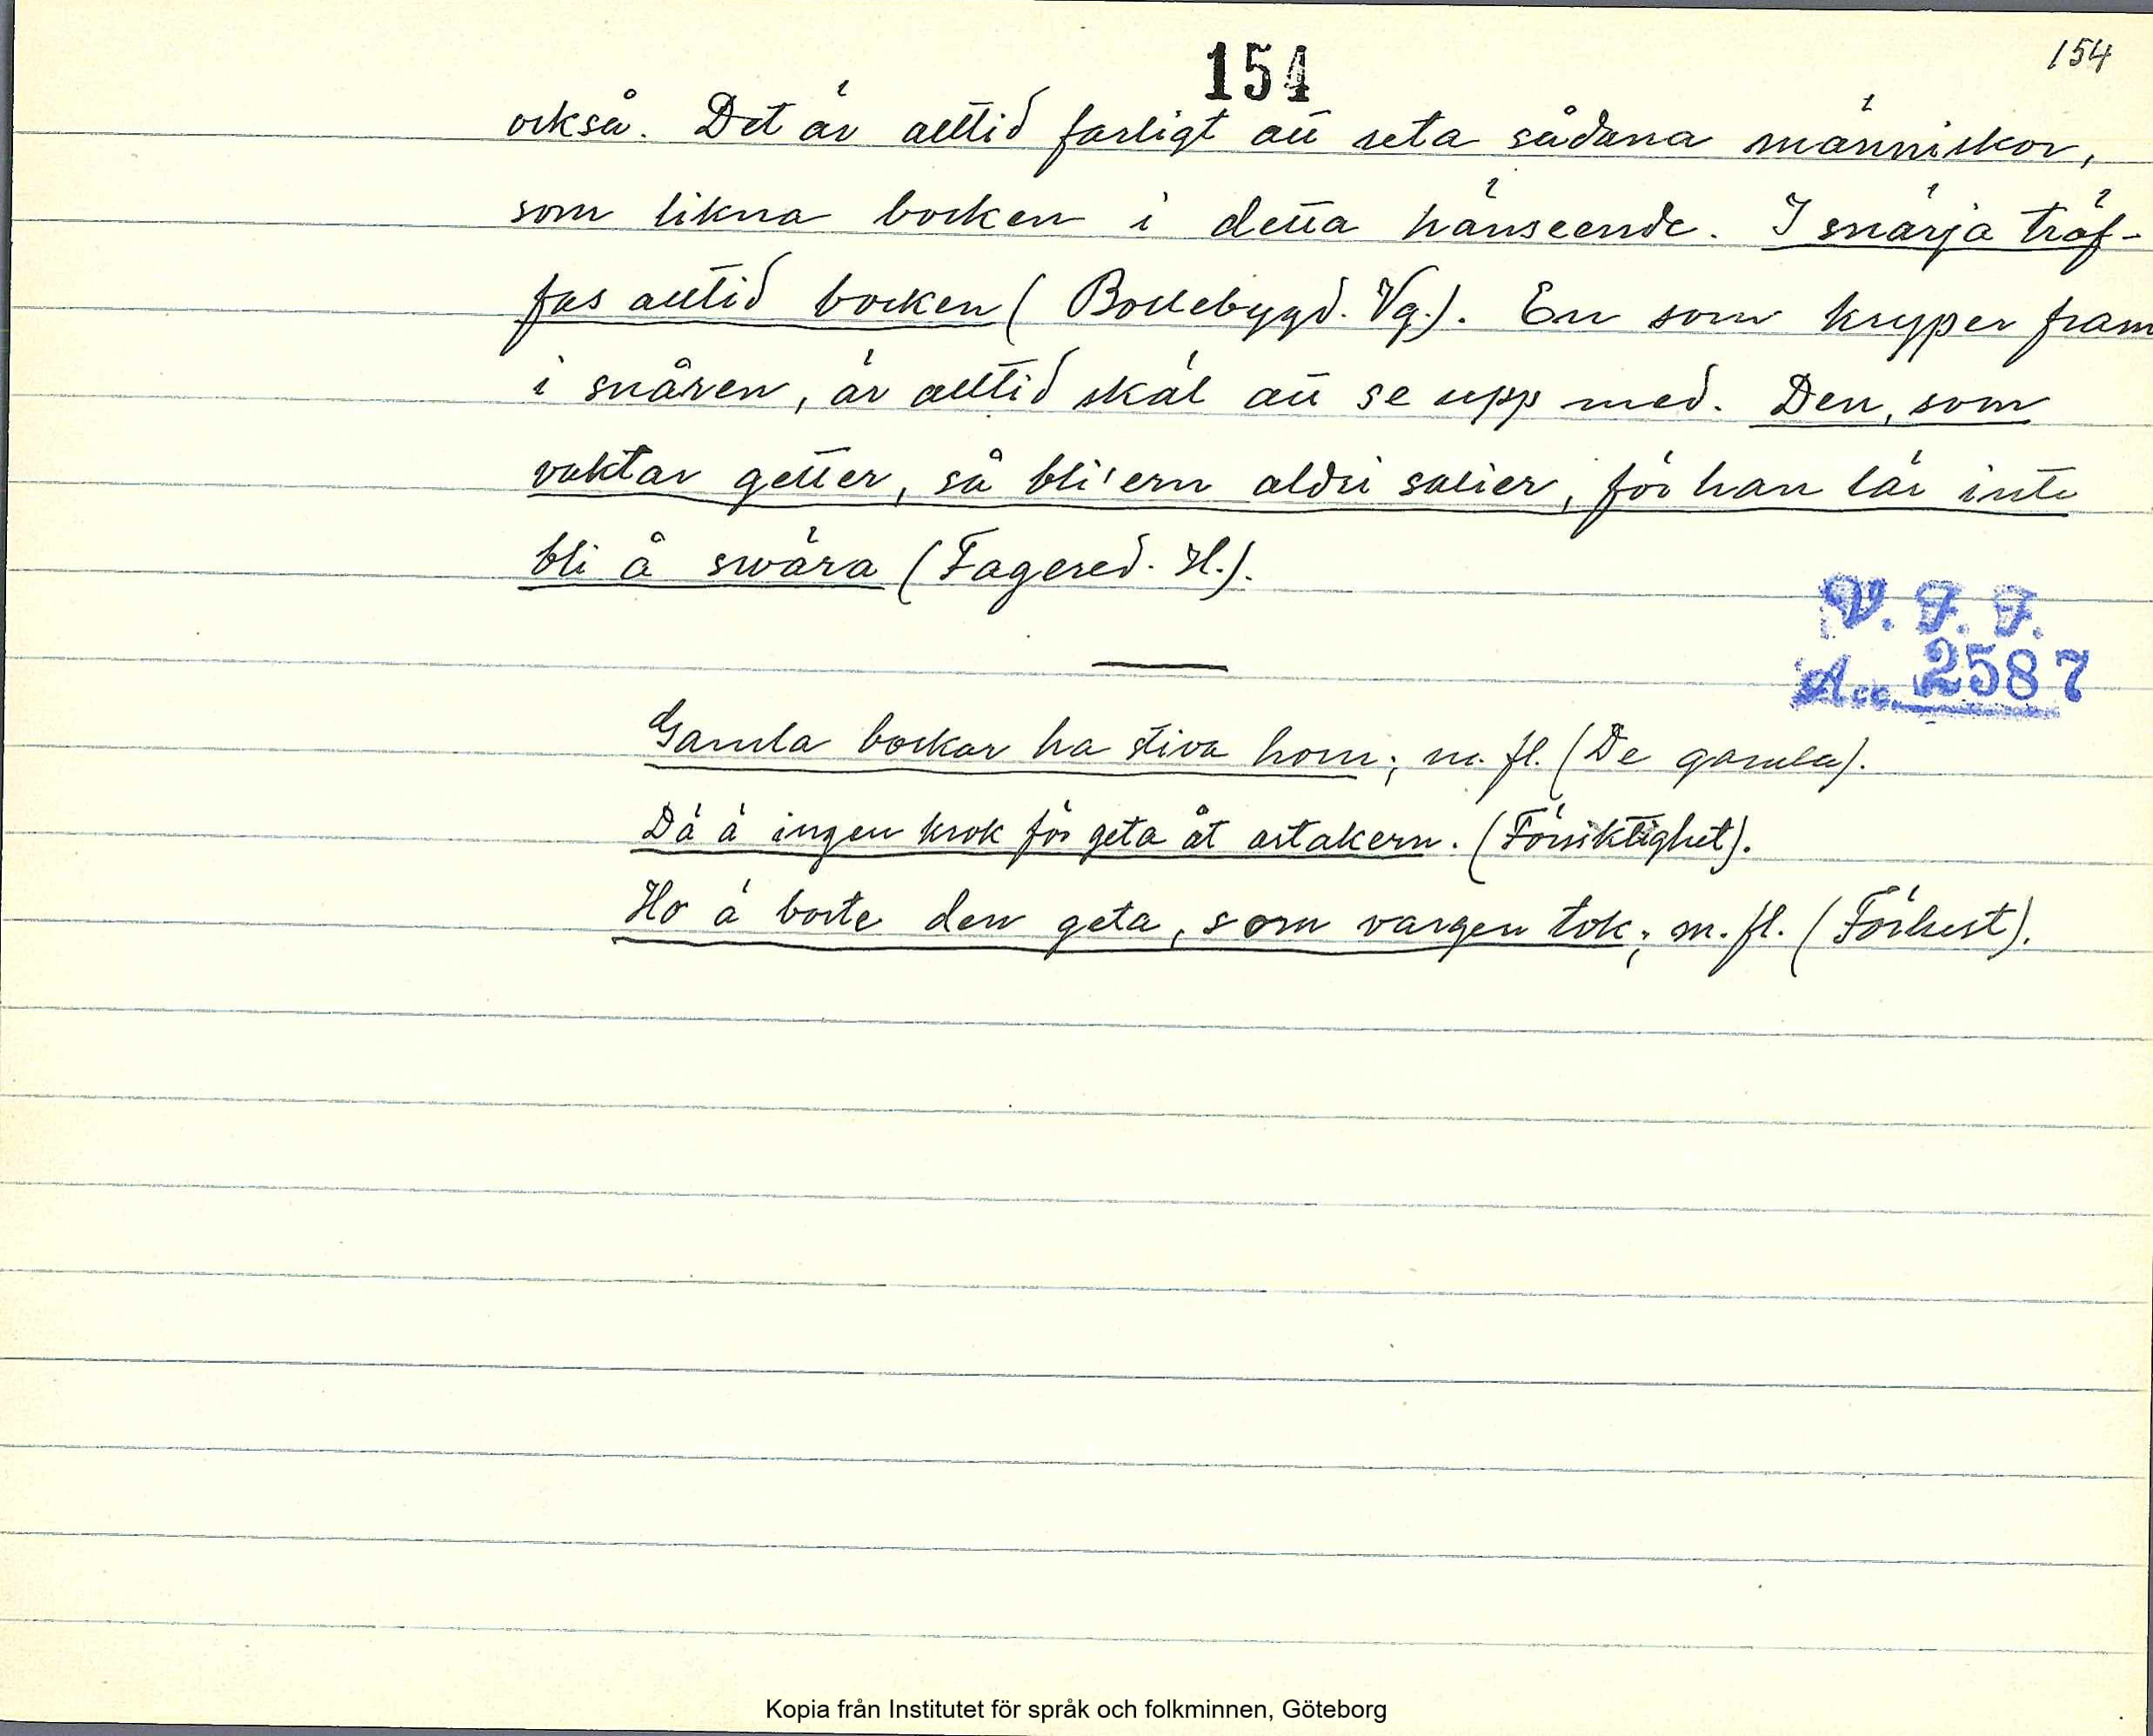 154
154
också. Det är alltid farligt att reta sådana människor,
som likna bocken i detta hänseende. I snärja träf-
fas alltid bocken (Bollebygd. Vg.). En som kryper fram
i snåren, är alltid skäl att se upp med. Den, som
vaktar getter, så bli'ern aldri salier, för han lär inte
bli å svära (Fagered. H.).
V. F. F.
Acc. 2587
Gamla bockar ha stiva horn; m. fl. (De gamla).
Dä ä ingen krok för geta åt ärtakern. (Försiktighet).
Ho ä borte den geta, som vargen tok; m. fl. (Förlust).
Kopia från Institutet för språk och folkminnen, Göteborg